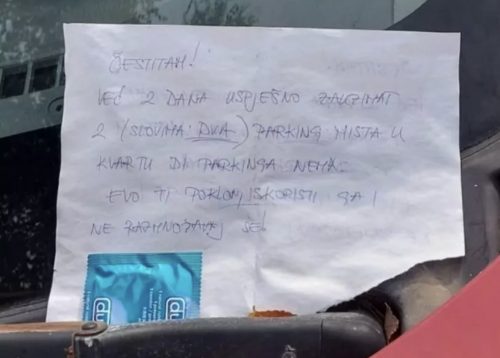 ČESTITAM!
VEĆ 2 DANA USPJEŠNO ZAUZIMAT
2 (SLOVIMA: DVA) PARKING MISTA U
KVARTU DI PARKINGA NEMA.
EVO TI POKLON, ISKORISTI GA I
NE RAZMNOŽAVAJ SE!
du